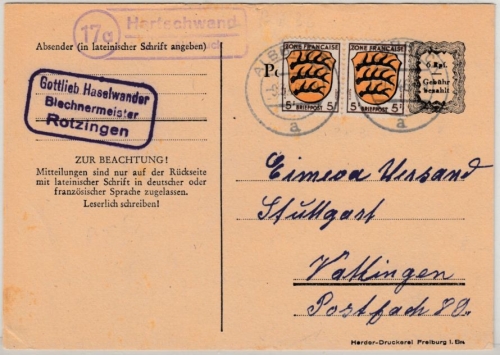 17a
Herfschwend
Absender (in lateinischer Schrift angeben)
Gottlieb Haselwander
Blechnermeister
Rotzingen
ZUR BEACHTUNG!
Mitteilungen sind nur auf der Rückseite
mit lateinischer Schrift in deutscher oder
französischer Sprache zugelassen.
Leserlich schreiben!
ZONE FRANÇAISE
5 BRIEFPOST 5
ZONE FRANÇAISE
5 BRIEFPOST 5
6 Rpf.
Gebühr
bezahlt
a
a
Eimeoa Versand
Stuttgart
Vaihingen
Postfach 80.
Herder-Druckerei Freiburg i. Br.